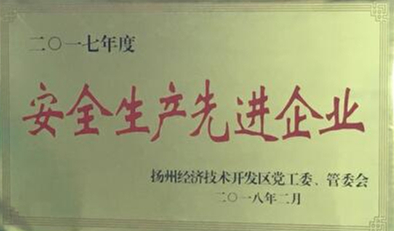 二〇一七年度
安全生产先进企业
扬州经济技术开发区党工委、管委会
二〇一八年二月